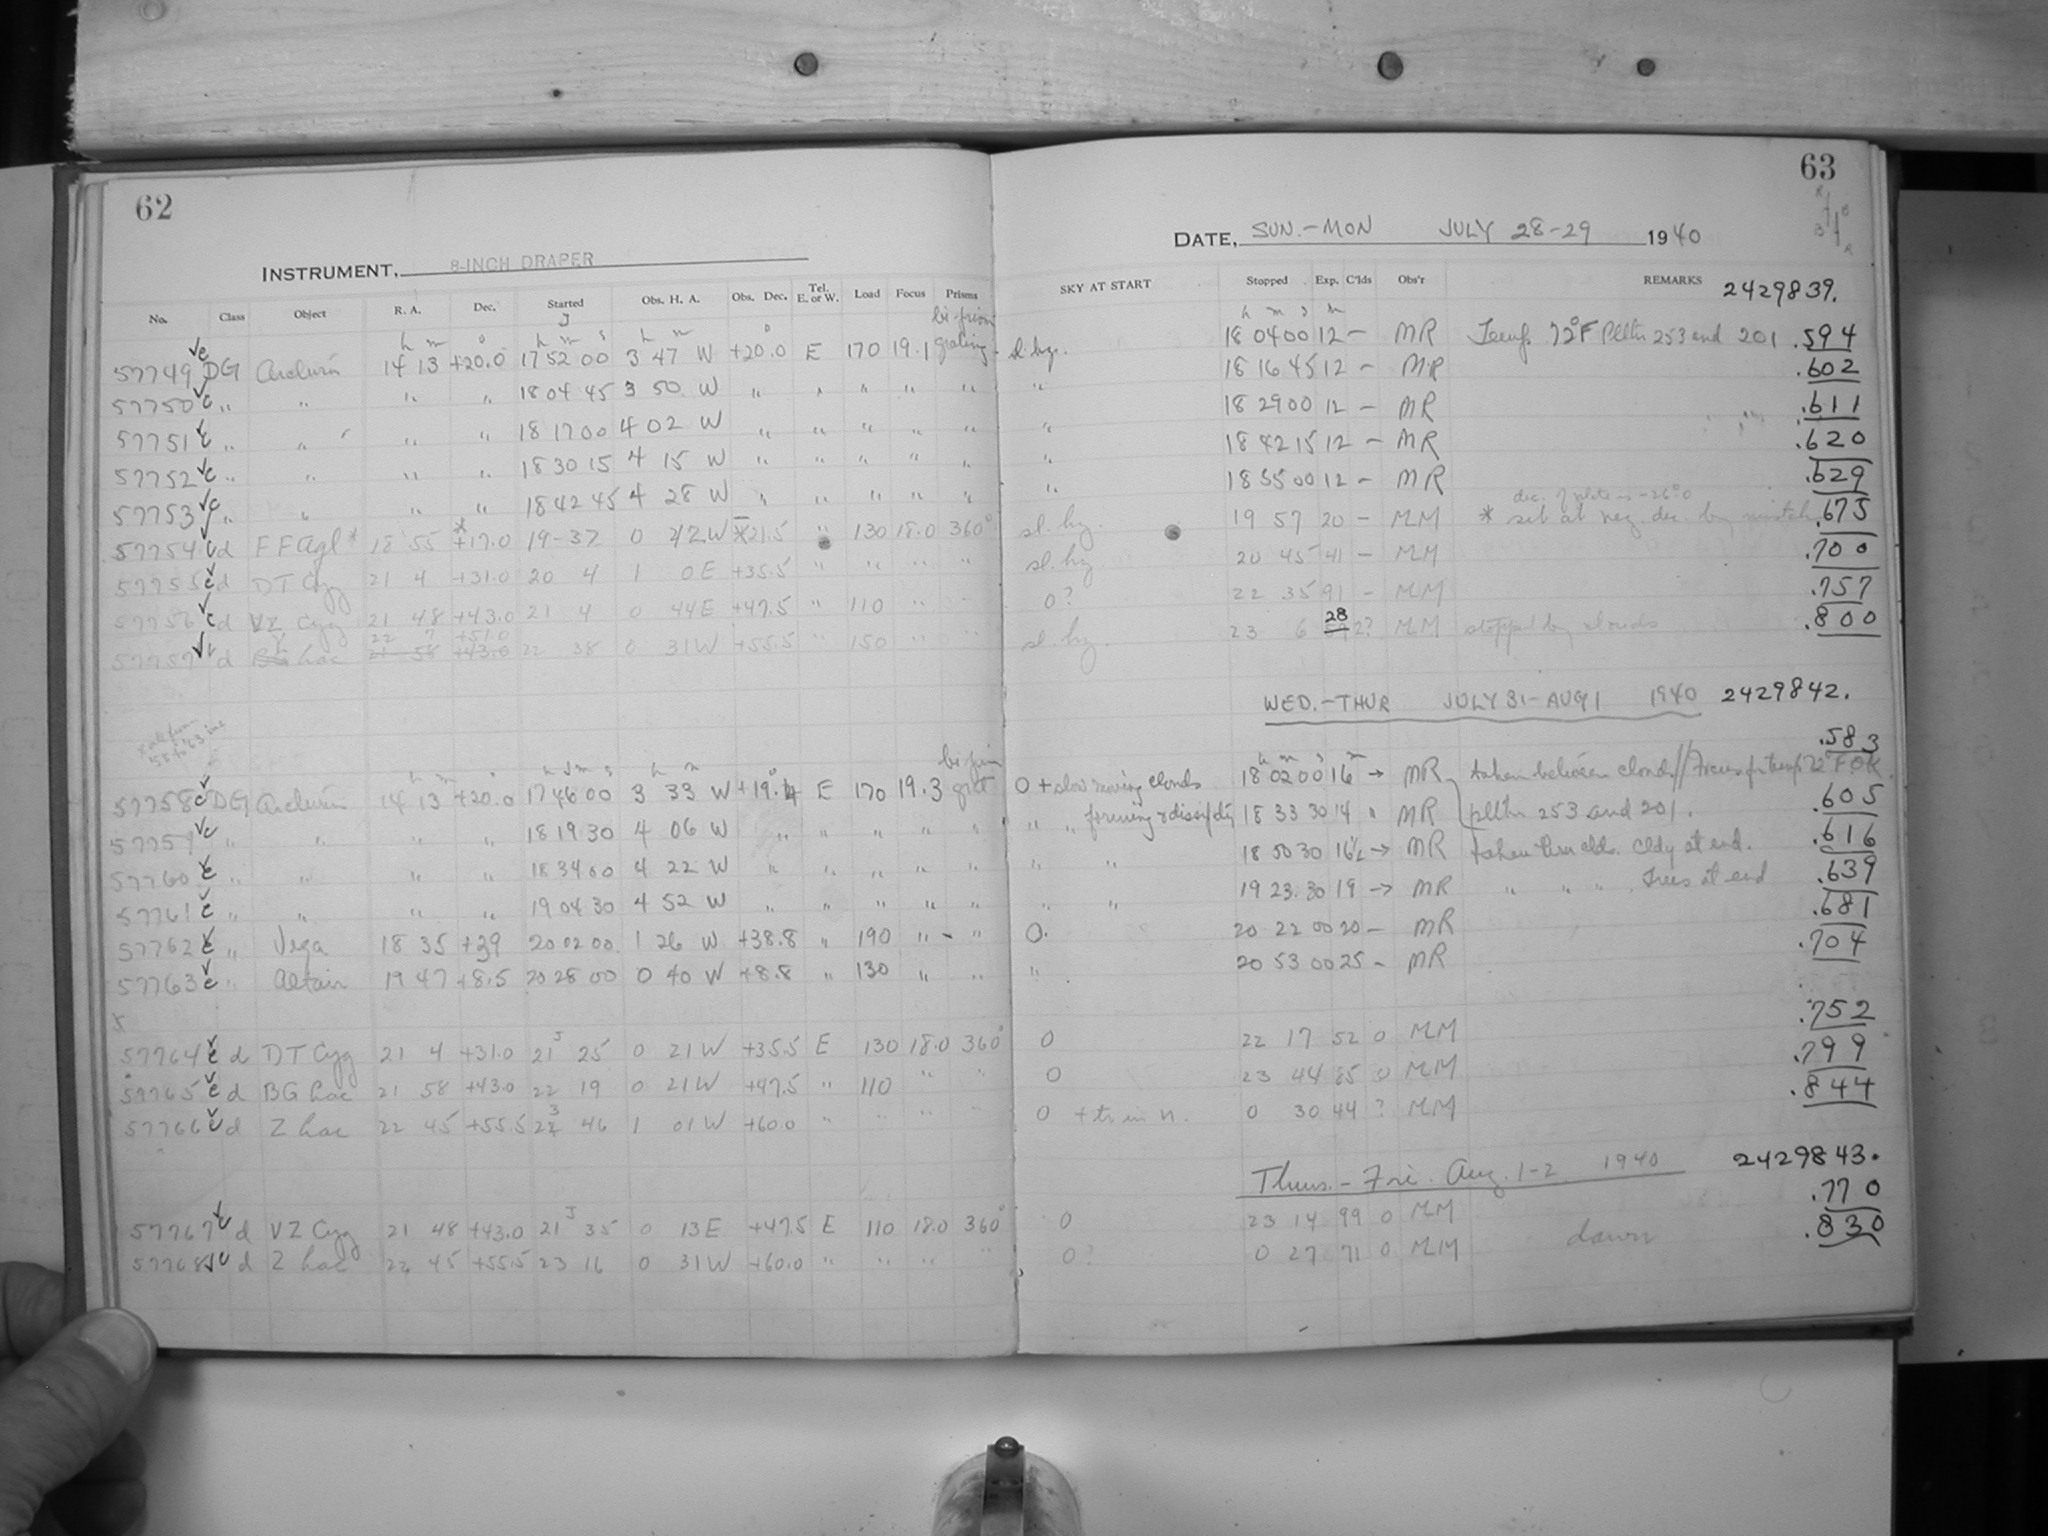 62
INSTRUMENT, 8-INCH DRAPER
No. Class Object R. A. Dec. Started Obs. H. A. Obs. Dec. Tel. E. or W. Load Focus Prisms
h m ° h m s h m °
57749 DG 14 13 +20.0 17 52 00 3 47 W +20.0 E 170 19.1 grating
57750 " " " " 18 04 45 3 50 W " " " " "
57751 " " " " 18 17 00 4 02 W " " " " "
57752 " " " " 18 30 15 4 15 W " " " " "
57753 " " " " 18 42 45 4 28 W " " " " "
57754 d FF Aql* 18 55 *+17.0 19-37 0 42 W *21.5 " 130 18.0 360°
57755 d DT Cyg 21 4 +31.0 20 4 1 0 E +35.5 " " " "
57756 d VZ Cyg 21 48 +43.0 21 4 0 44 E +47.5 " 110 " "
57757 d V Lac 22 7 +51.0 21 58 +43.0 22 38 0 31 W +55.5 150
57758 DG 14 13 +20.0 17 46 00 3 33 W +19.4 E 170 19.3
57759 " " " " 18 19 30 4 06 W " " " " "
57760 " " " " 18 34 00 4 22 W " " " " "
57761 " " " " 19 04 30 4 52 W " " " " "
57762 " Vega 18 35 +39 20 02 00 1 26 W +38.8 " 190 " "
57763 " Altair 19 47 +8.5 20 28 00 0 40 W +8.8 " 130 " "
x
57764 d DT Cyg 21 4 +31.0 21 25 0 21 W +35.5 E 130 18.0 360°
57765 d BG Lac 21 58 +43.0 22 19 0 21 W +47.5 " 110 " "
57766 d Z Lac 22 45 +55.5 23 46 1 01 W +60.0 " " " "
57767 d VZ Cyg 21 48 +43.0 21 35 0 13 E +47.5 E 110 18.0 360°
57768 d Z Lac 22 45 +55.5 23 16 0 31 W +60.0 " " " "
63
DATE, SUN.-MON JULY 28-29 1940
SKY AT START Stopped Exp. C'lds Obs'r REMARKS 2429839.
h m s m
18 04 00 12 - MR Temp. 72°F Plltn 253 and 201 .594
" 18 16 45 12 - MR .602
" 18 29 00 12 - MR .611
" 18 42 15 12 - MR .620
" 18 55 00 12 - MR .629
dec. of plate is -26°0
sl. hzy. 19 57 20 - MM * set at neg. dec. by mistake .675
sl. hzy 20 45 41 - MM .700
0? 22 35 91 - MM .757
sl. hzy. 23 6 28 2? MM stopped by clouds .800
WED.-THUR JULY 31-AUG 1 1940 2429842.
.583
0 + slow moving clouds 18 02 00 16 → MR taken between clouds//Focus for temp 72°F OK.
" " forming & dissipating 18 33 30 14 " MR plltn 253 and 201. .605
" " 18 50 30 16½ → MR taken thru clds. Cldy at end. .616
" " 19 23 30 19 → MR " " " Trees at end .639
0. 20 22 00 20 - MR .681
" 20 53 00 25 - MR .704
0 22 17 52 0 MM .752
0 23 44 85 0 MM .799
0 + tr in n. 0 30 44 ? MM .844
Thurs.-Fri. Aug. 1-2 1940 2429843.
0 23 14 99 0 MM .770
0? 0 27 71 0 MM dawn .830